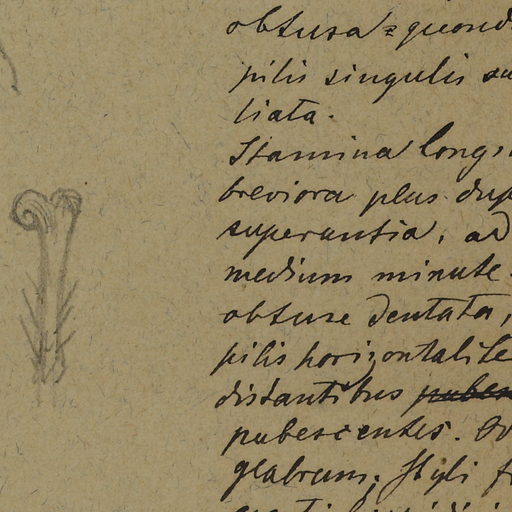 obtusa quond
pilis singulis
liata.
Stamina long
breviora plus dup
superantia, ad
medium minute
obtuse dentata,
pilis horizontalite
distantibus puben
pubescentes. Ov
glabrum; Styli f